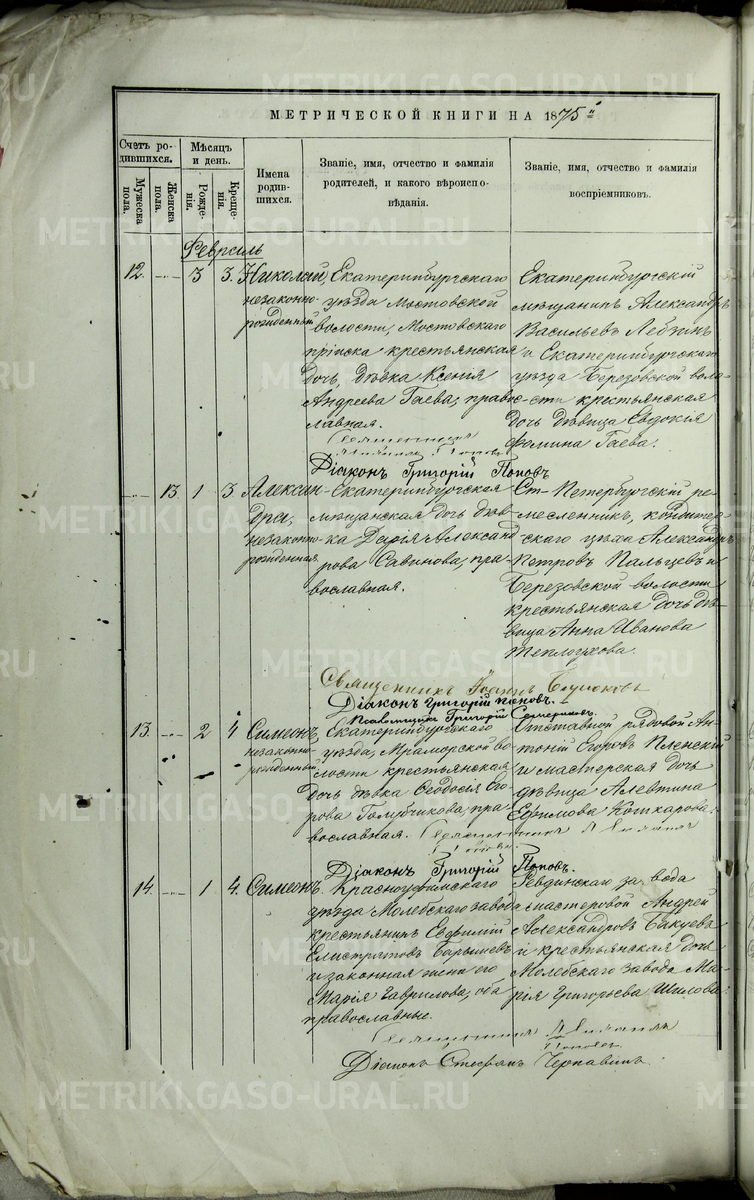 МЕТРИЧЕСКОЙ КНИГИ НА 1875 й
Счетъ ро-
дившихся.
Мѣсяцъ
и день.
Мужеска
пола.
Женска
пола.
Рожде-
нія.
Креще-
нія.
Имена
родив-
шихся.
Званіе, имя, отчество и фамилія
родителей, и какого вѣроиспо-
вѣданія.
Званіе, имя, отчество и фамилія
воспріемниковъ.
Февраль
12. 3 3. Николай,
незаконно-
рожденный
Екатеринбургскаго
уѣзда Мостовской
волости, Мостовскаго
пріиска крестьянская
дочь, дѣвка Ксенія
Андреева Гаева, право-
славная.
Екатеринбургскій
мѣщанинъ Александръ
Васильевъ
и Екатеринбургскаго
уѣзда Березовской воло-
сти крестьянская
дочь дѣвица Евдокія
Фомина Гаева.
Діаконъ Григорій Поповъ
13. 1 3. Алексан-
дра,
незаконно-
рожденная
Екатеринбургская
мѣщанская дочь дѣв-
ка Дарія Александ-
рова Савинова, пра-
вославная.
Ст-Петербургскій ре-
месленникъ, кондитер-
скаго цеха Александръ
Петровъ Пальцевъ и
Березовской волости
крестьянская дочь дѣ-
вица Анна Иванова
Теплоухова.
Священникъ Іоаннъ
Діаконъ Григорій Поповъ.
Псаломщикъ Григорій
13. 2 4 Симеонъ,
незаконно-
рожденный.
Екатеринбургскаго
уѣзда, Мраморской во-
лости крестьянская
дочь дѣвка Ѳеодосія Его-
рова Голубчикова, пра-
вославная.
Отставной рядовой Ан-
тоній Егоровъ Пленскій
и мастерская дочь
дѣвица Алевтина
Ефимова Кочкарова.
Діаконъ Григорій Поповъ.
14. 1 4. Симеонъ.
Красноуфимскаго
уѣзда Молебскаго завода
крестьянинъ Евфимій
Елистратовъ Барышевъ
и законная жена его
Марія Гаврилова, оба
православные.
Ревдинскаго завода
мастеровой Андрей
Александровъ Бакуевъ
и крестьянская дочь
Молебскаго завода Ма-
рія Григорьева Шилова.
Діаконъ Стефанъ Чернавинъ.
METRIKI.GASO-URAL.RU